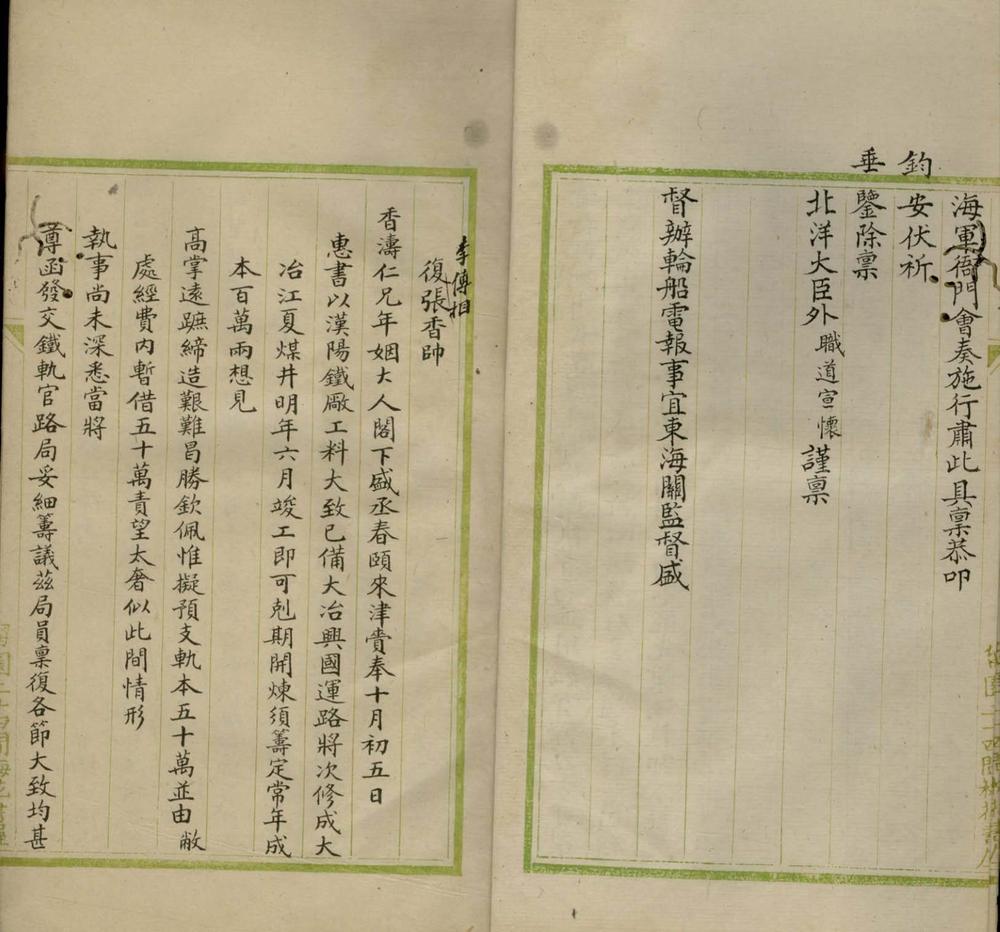 海軍衙門會奏施行肅此具稟恭叩
鈞安伏祈
垂鑒除稟
北洋大臣外職道宣懷謹稟
督辦輪船電報事宜東海關監督盛
李傅相
復張香帥
香濤仁兄年姻大人閣下盛丞春頤來津賫奉十月初五日
惠書以漢陽鐵廠工料大致已備大冶興國運路將次修成大
冶江夏煤井明年六月竣工即可剋期開煉須籌定常年成
本百萬兩想見
高掌遠蹠締造艱難曷勝欽佩惟擬預支軌本五十萬並由敝
處經費內暫借五十萬責望太奢似此間情形
執事尚未深悉當將
尊函發交鐵軌官路局妥細籌議茲局員稟復各節大致均甚